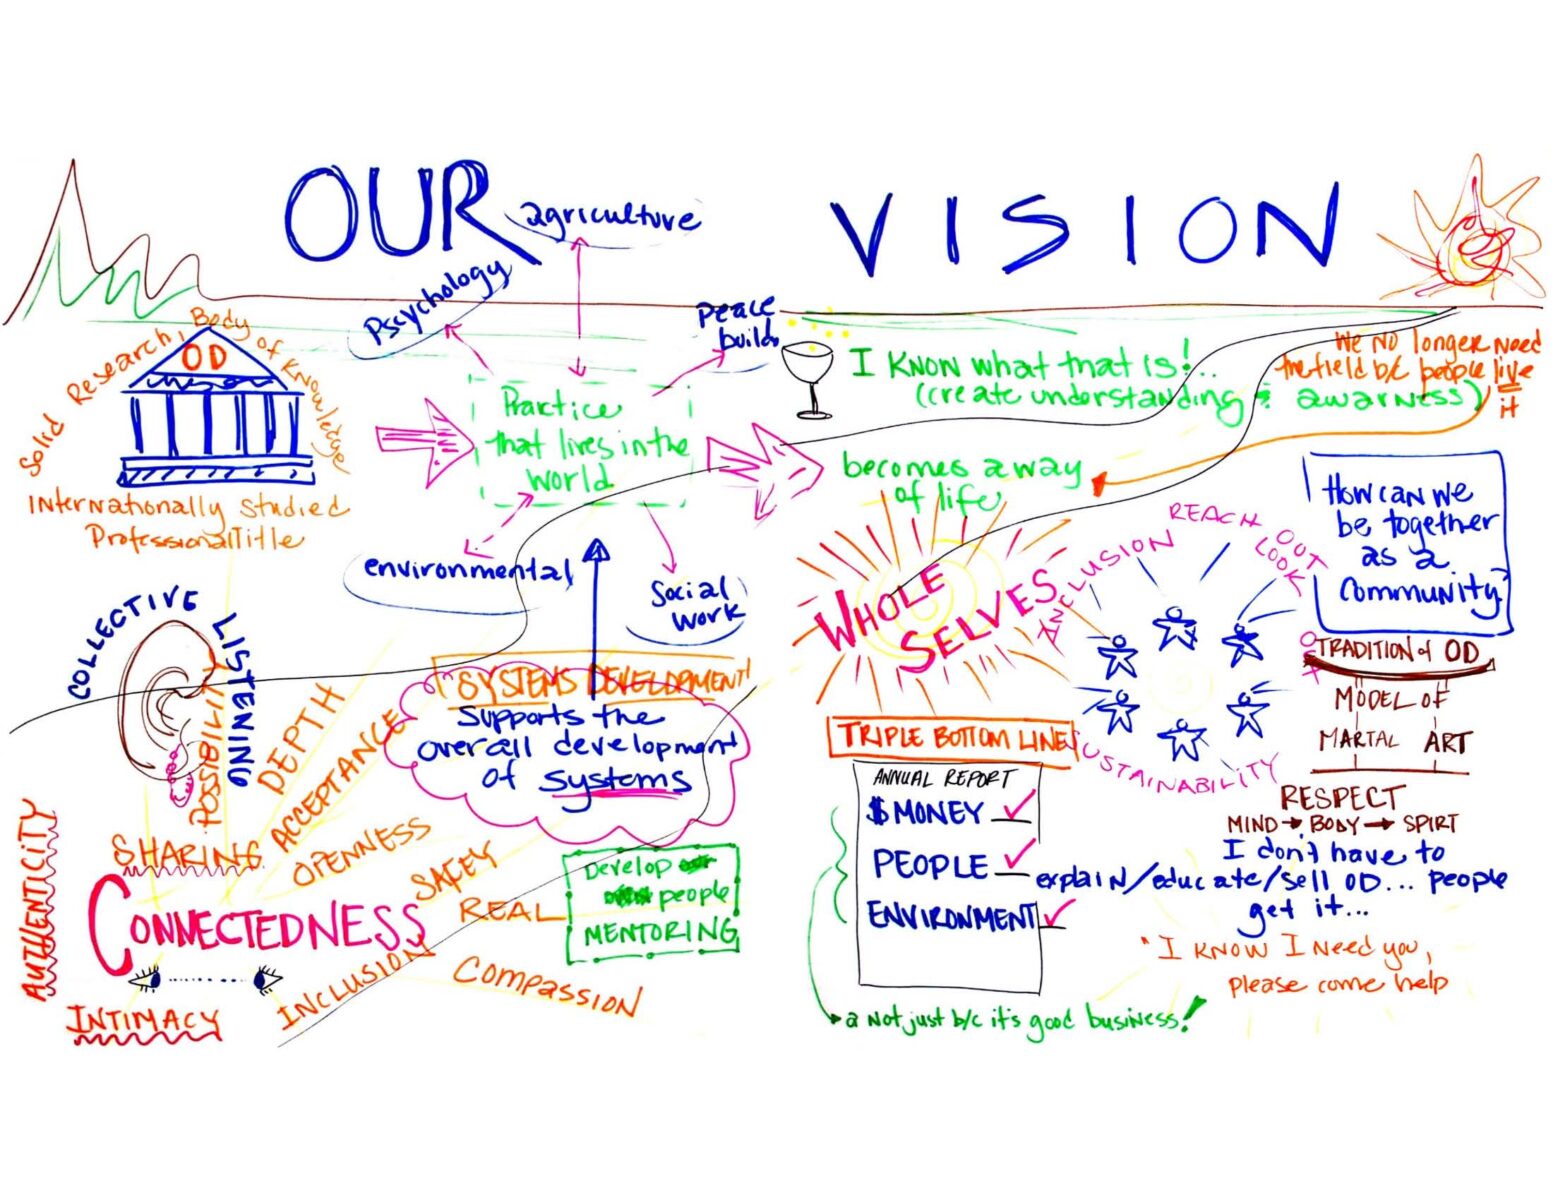 OUR VISION
agriculture
Pscychology
Peace
builds
Solid Research, Body of Knowledge
OD
Internationally Studied
Professional Title
Practice
that lives in the
world
environmental
Social
work
I KNOW what that is!..
(create understanding & awarness)
We No longer Need
the field b/c people live
it
becomes a way
of life
WHOLE
SELVES
INCLUSION
REACH OUT
LOOK OUT
SUSTAINABILITY
How can we
be together
as a
community?
TRADITION of OD
MODEL OF
MARTAL ART
RESPECT
MIND → BODY → SPIRT
I don't have to
explain/educate/sell OD... people
get it...
"I KNOW I Need you,
please come help
COLLECTIVE LISTENING
POSSIBILITY
DEPTH
ACCEPTANCE
SHARING
OPENNESS
SAFEY
REAL
COMPASSION
INCLUSION
AUTHENTICITY
CONNECTEDNESS
INTIMACY
SYSTEMS DEVELOPMENT
Supports the
overall development
of systems
Develop
people
MENTORING
TRIPLE BOTTOM LINE
ANNUAL REPORT
$ MONEY ✓
PEOPLE ✓
ENVIRONMENT ✓
a Not just b/c it's good business!